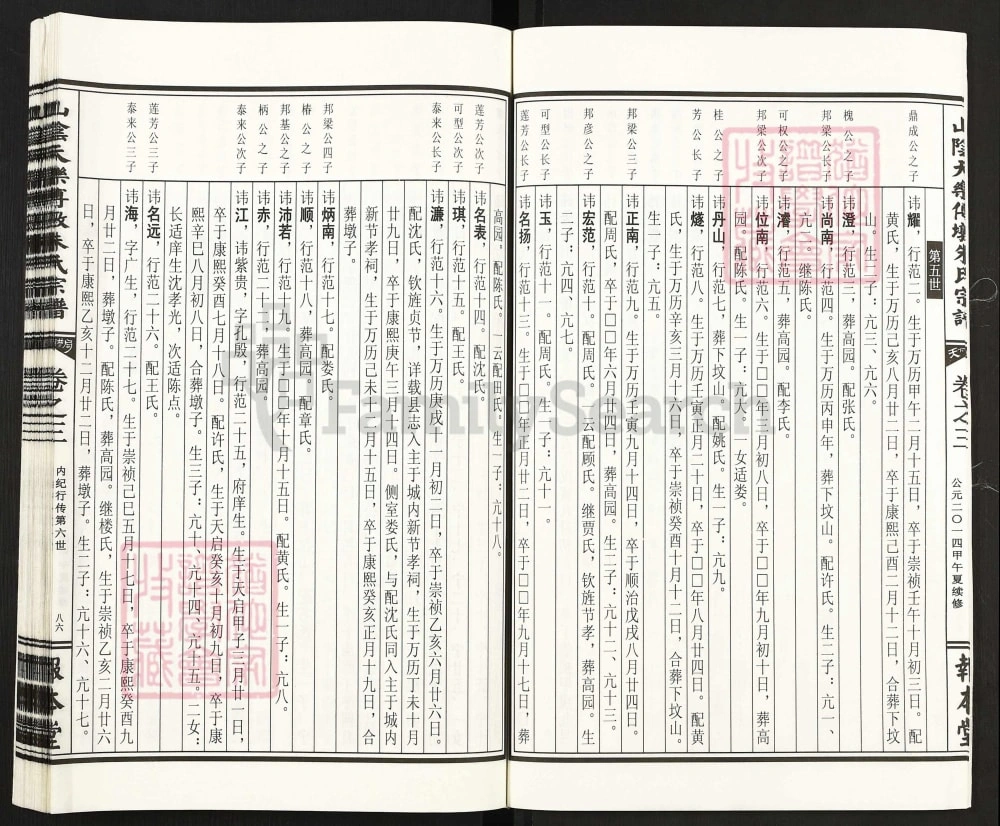 山陰天樂傅墩朱氏宗譜
天
卷之三
公元二〇一四甲午夏续修
報本堂
第五世
鼎成公之子
讳耀，行范二。生于万历甲午二月十五日，卒于崇祯壬午十月初三日。配
黄氏，生于万历己亥八月廿二日，卒于康熙己酉二月十二日，合葬下坟
山。生二子：亢三、亢六。
槐公之子
讳澄，行范三，葬高园。配张氏。
邦梁公长子
讳尚南，行范四。生于万历丙申年，葬下坟山。配许氏。生二子：亢一、
亢二。继陈氏。
可权公之子
讳濬，行范五，葬高园。配李氏。
邦梁公次子
讳位南，行范六。生于□□年三月初八日，卒于□□年九月初十日，葬高
园。配陈氏。生一子：亢大。一女适娄。
桂公之子
讳丹山，行范七，葬下坟山。配姚氏。生一子：亢九。
芳公长子
讳燧，行范八。生于万历壬寅正月二十日，卒于□□年八月廿四日。配黄
氏，生于万历辛亥三月十六日，卒于崇祯癸酉十月十二日，合葬下坟山。
生一子：亢五。
邦梁公三子
讳正南，行范九。生于万历壬寅九月十四日，卒于顺治戊戌八月廿四日。
配周氏，卒于□□年六月廿四日，葬高园。生二子：亢十二、亢十三。
邦彦公之子
讳宏范，行范十。配周氏。一云配顾氏。继贾氏，钦旌节孝，葬高园。生
二子：亢四、亢七。
可型公长子
讳玉，行范十一。配周氏。生一子：亢十一。
莲芳公长子
讳名扬，行范十三。生于□□年正月廿二日，卒于□□年九月十七日，葬
高园。配陈氏。一云配田氏。生一子：亢十八。
莲芳公次子
讳名表，行范十四。配沈氏。
可型公次子
讳琪，行范十五。配王氏。
泰来公长子
讳濂，行范十六。生于万历庚戌十一月初二日，卒于崇祯乙亥六月廿六日。
配沈氏，钦旌贞节，详载县志入主于城内新节孝祠，生于万历丁未十月
廿九日，卒于康熙庚午三月十四日。侧室娄氏，与配沈氏同入主于城内
新节孝祠，生于万历己未三月十五日，卒于康熙癸亥正月十九日，合
葬墩子。
邦梁公四子
讳炳南，行范十七。配娄氏。
椿公之子
讳顺，行范十八，葬高园。配章氏。
邦基公之子
讳沛若，行范十九。生于□□年十月十五日。配黄氏。生一子：亢八。
柄公之子
讳赤，行范二十二，葬高园。
泰来公次子
讳江，讳紫贵，字孔殷，行范二十五，府庠生。生于天启甲子三月廿一日，
卒于康熙癸酉七月十八日。配许氏，生于天启癸亥十月初九日，卒于康
熙辛巳八月初八日，合葬墩子。生三子：亢十、亢十四、亢十五。二女：
长适庠生沈孝光，次适陈点。
莲芳公三子
讳名远，行范二十六。配王氏。
泰来公三子
讳海，字广生，行范二十七。生于崇祯己巳五月十七日，卒于康熙癸酉九
月廿二日，葬墩子。配陈氏，葬高园。继楼氏，生于崇祯乙亥二月廿六
日，卒于康熙乙亥十二月廿二日，葬墩子。生二子：亢十六、亢十七。
山陰天樂傅墩朱氏宗譜
卷之三
内纪行传第六世
八六
報本堂
FamilySearch